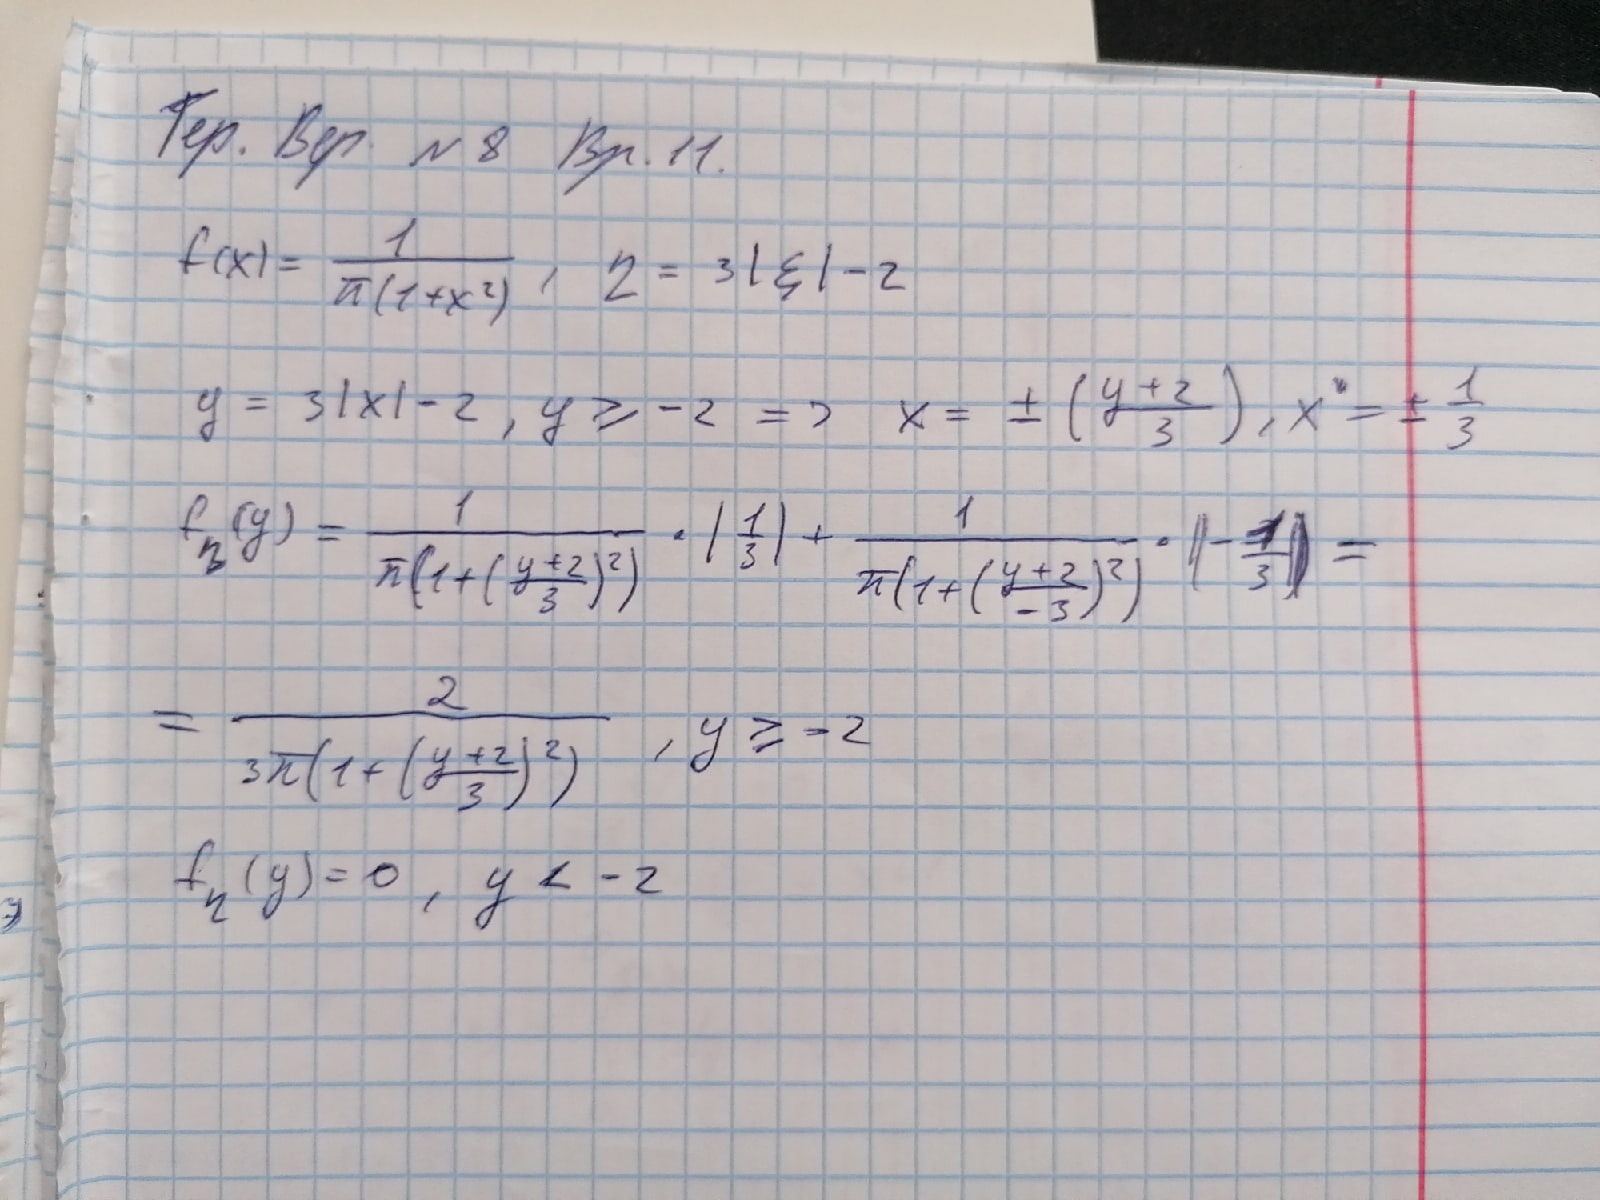 Тер. Вер. №8 Вр. 11.
f(x) = 1/(π(1+x²)), η = 3|ξ| - 2
y = 3|x| - 2, y ⩾ -2 => x = ± ((y+2)/3), x' = ± 1/3
f_η(y) = 1/(π(1+((y+2)/3)²)) · |1/3| + 1/(π(1+((y+2)/-3)²)) · |-1/3| =
= 2/(3π(1+((y+2)/3)²)), y ⩾ -2
f_η(y) = 0, y < -2